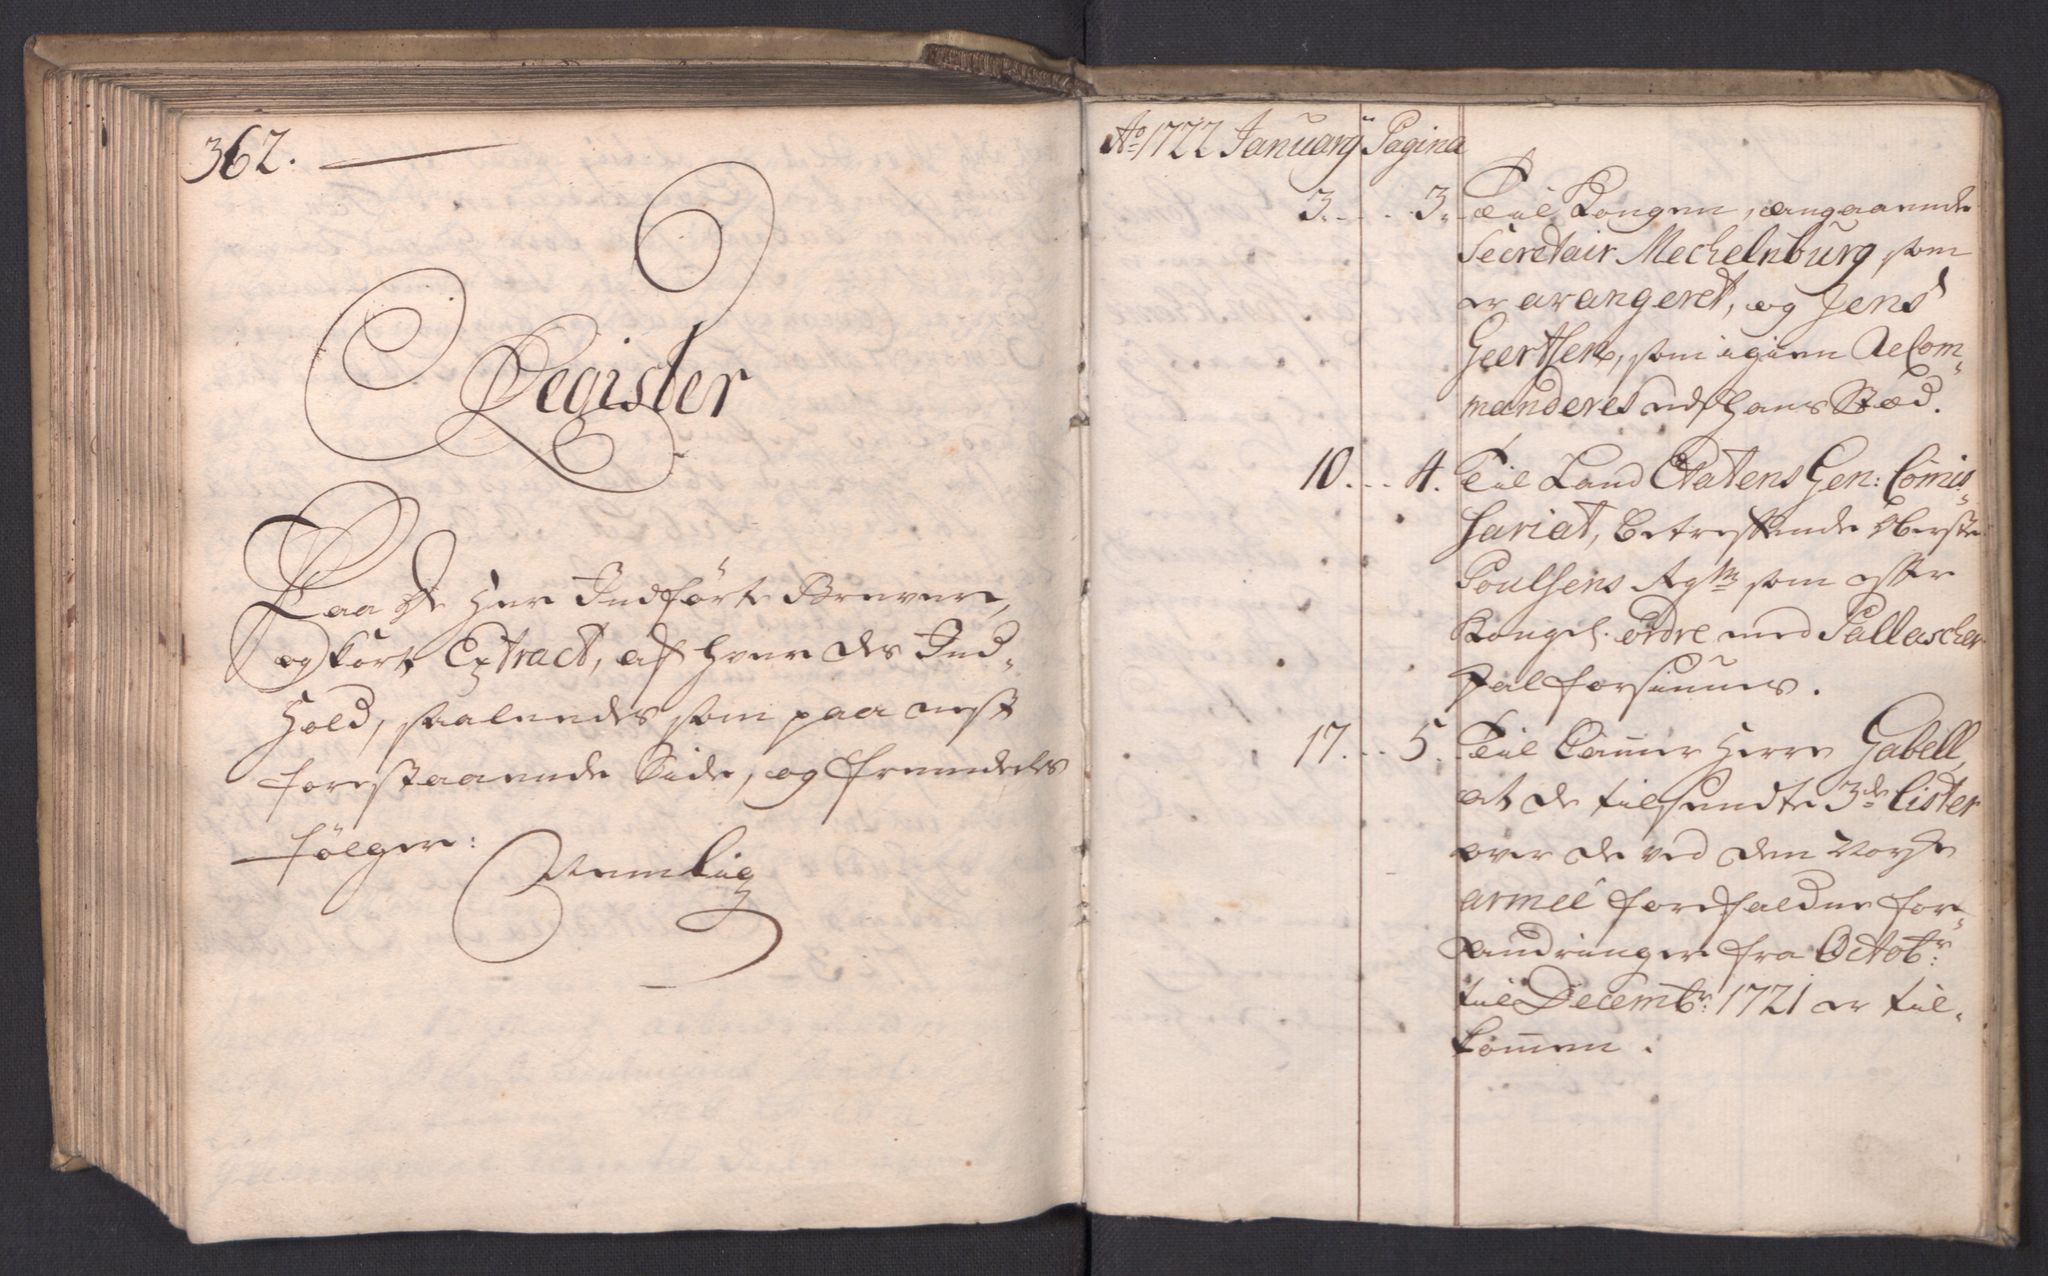 362.
Register
Paa De Her Indførte Brever,
og kort Extract, af hver des Ind=
Hold, saaledes som paa nest
forestaaende Side, og fremdeles
følger:
Nemlig
Ao 1722 January Pagina
3. 3. Til Kongen, angaaende
Secretair Mechelnburg, som
er arangeret, og Jens
Geertsen, som igien recom=
manderes udj hans Stæd.
10. 4. Til Land Etatens Gen: Comis=
sariat, betreffende Oberste
Poulsens Regm som efter
Kongel. ordre med Pallascher
skal forsiunes.
17. 5. Til Cammer Herre Gabell,
at de tilsendte 3de Lister
over de ved den Norske
armee forefaldne for=
andringer fra Octobr:
til Decembr: 1721 er til=
kommen.